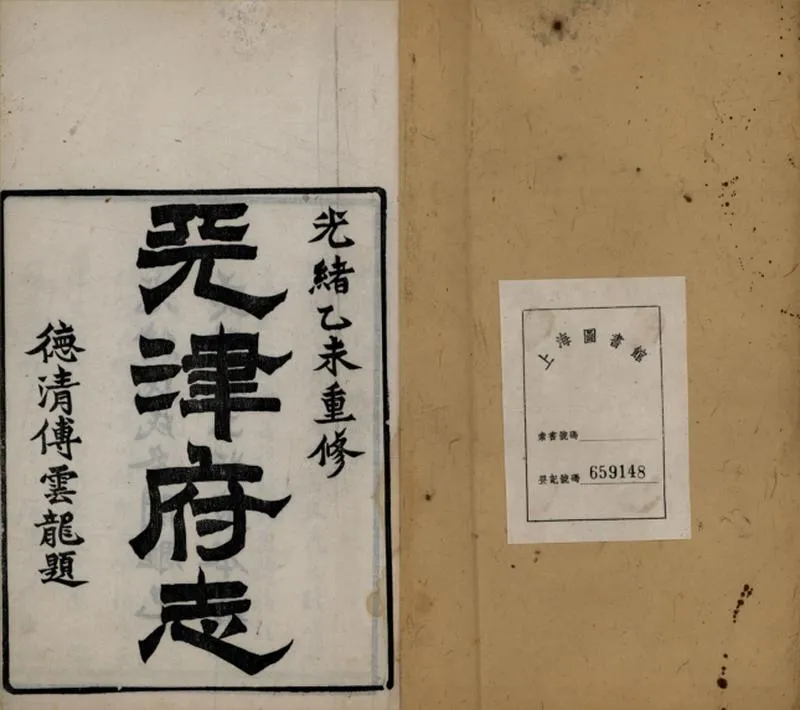 光緒乙未重修
天津府志
德清傅雲龍題
上海圖書館
索書號碼
登記號碼 659148